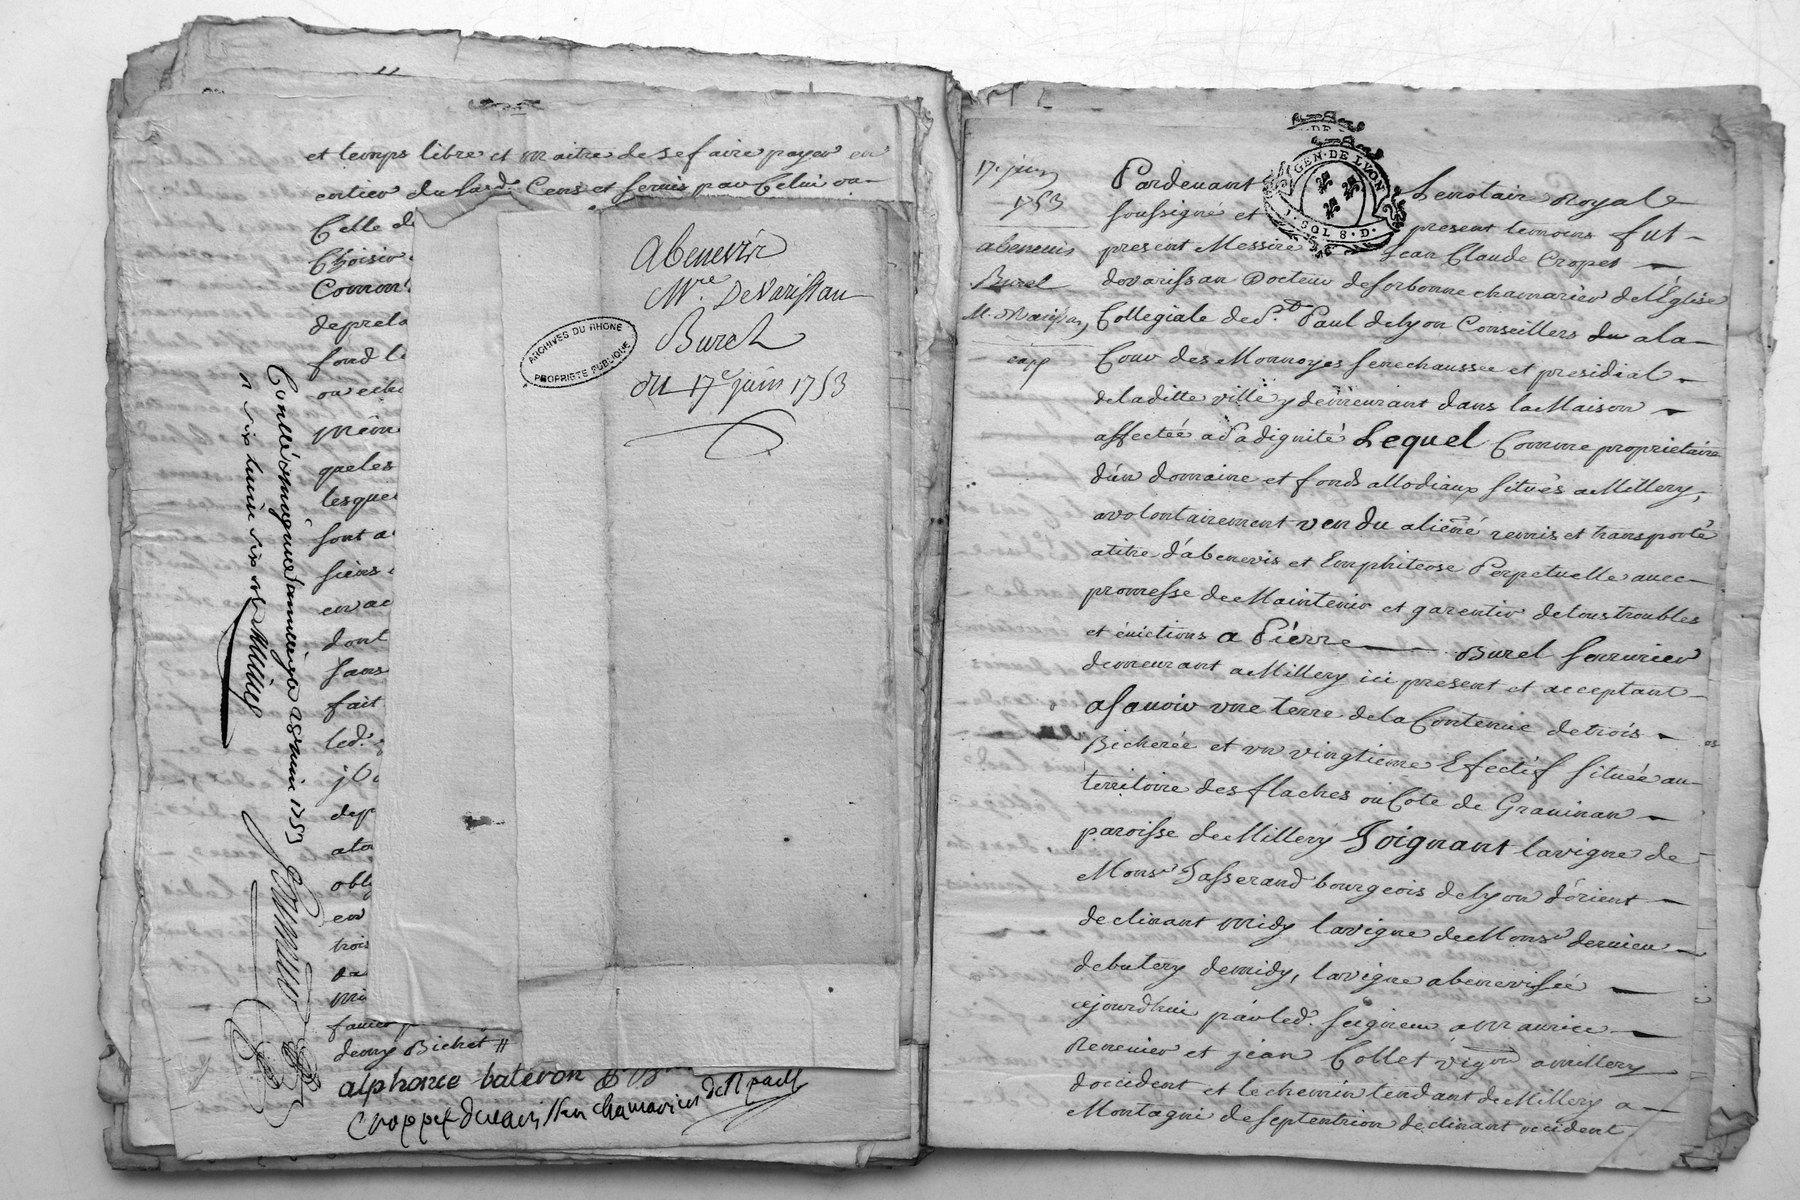 et temps libre et maitre de se faire payer en
entier du Sard. Cens et servis par Celui ou
Celle de
Choisir
Comm
depreta
fond le
ou echo
même
queles
lesquel
sont a
siens
en ac
dont
sans
fait
led.
depr
ato
obli
en
trois
da
mi
demy Bichet
alphonce bateron
Croppet devarissan chamarier de St paul
Controllé a 28 juin 1753
six
Abenevis
Mre. Devarissan
Burel
du 17e juin 1753
ARCHIVES DU RHONE
PROPRIETE PUBLIQUE
17. juin
1753
abenevis
Burel
exp
GEN. DE LYON
1. SOL 8. D.
Pardevant Le notaire Royal
soussigné et present temoins fut
present Messire Jean Claude Cropet
dovarissan Docteur de sorbonne chamarier de l'Eglise
Collegiale de St. Paul de lyon Conseillers du a la
Cour des Monnoyes senechaussee et presidial
de laditte ville y demeurant dans la Maison
affectée a sa dignité Lequel Comme proprietaire
d'un domaine et fonds allodiaux situés a Millery,
a volontairement vendu aliené remis et transporté
a titre d'abenevis et Emphiteose Perpetuelle avec
promesse de Maintenir et garentir de tous troubles
et évictions a Piérre Burel serrurier
demeurant a Millery ici present et acceptant
a sauoir vne terre de la Contenue de trois
Bicherée et vn vingtieme Efectif située au
territoire des flaches ou Cote de Grauinan
paroisse de Millery Joignant la vigne de
Monsr Jasserand bourgeois de lyon d'orient
declinant midy la vigne de Monsr dernieu
debutery de midy, la vigne abenevisée
cejourd'hui par led. seigneur a Maurice
Renevier et jean Collet vigron a millery
d'occident et le chemin tendant de Millery a
Montagni de septentrion declinant occident